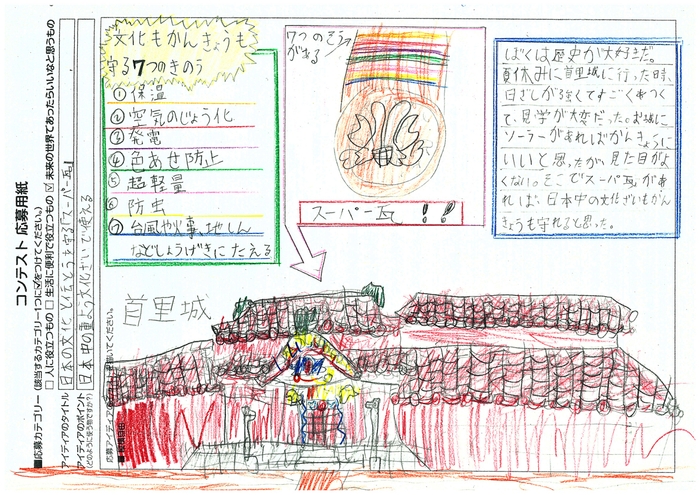 コンテスト 応募用紙
■応募カテゴリー (該当するカテゴリー1つに☑をつけてください。)
□ 人に役立つもの □ 生活に便利で役立つもの ☑ 未来の世界であったらいいなと思うもの
アイディアのタイトル 日本の文化と伝とうを守る「スーパー瓦」
アイディアのポイント 日本中の重よう文化ざいで使える
(どのように使う物ですか?)
文化もかんきょうも
守る7つのきのう
① 保温
② 空気のじょう化
③ 発電
④ 色あせ防止
⑤ 超軽量
⑥ 防虫
⑦ 台風や火事、地しん
などしょうげきにたえる
7つのそう
がある
スーパー瓦!!
ぼくは歴史が大好きだ。
夏休みに首里城に行った時、
日ざしが強くてすごくあつく
て、見学が大変だった。お城に
ソーラーがあればかんきょうに
いいと思ったが、見た目がよ
くない。そこでスーパー瓦があ
れば、日本中の文化ざいもかん
きょうも守れると思った。
首里城